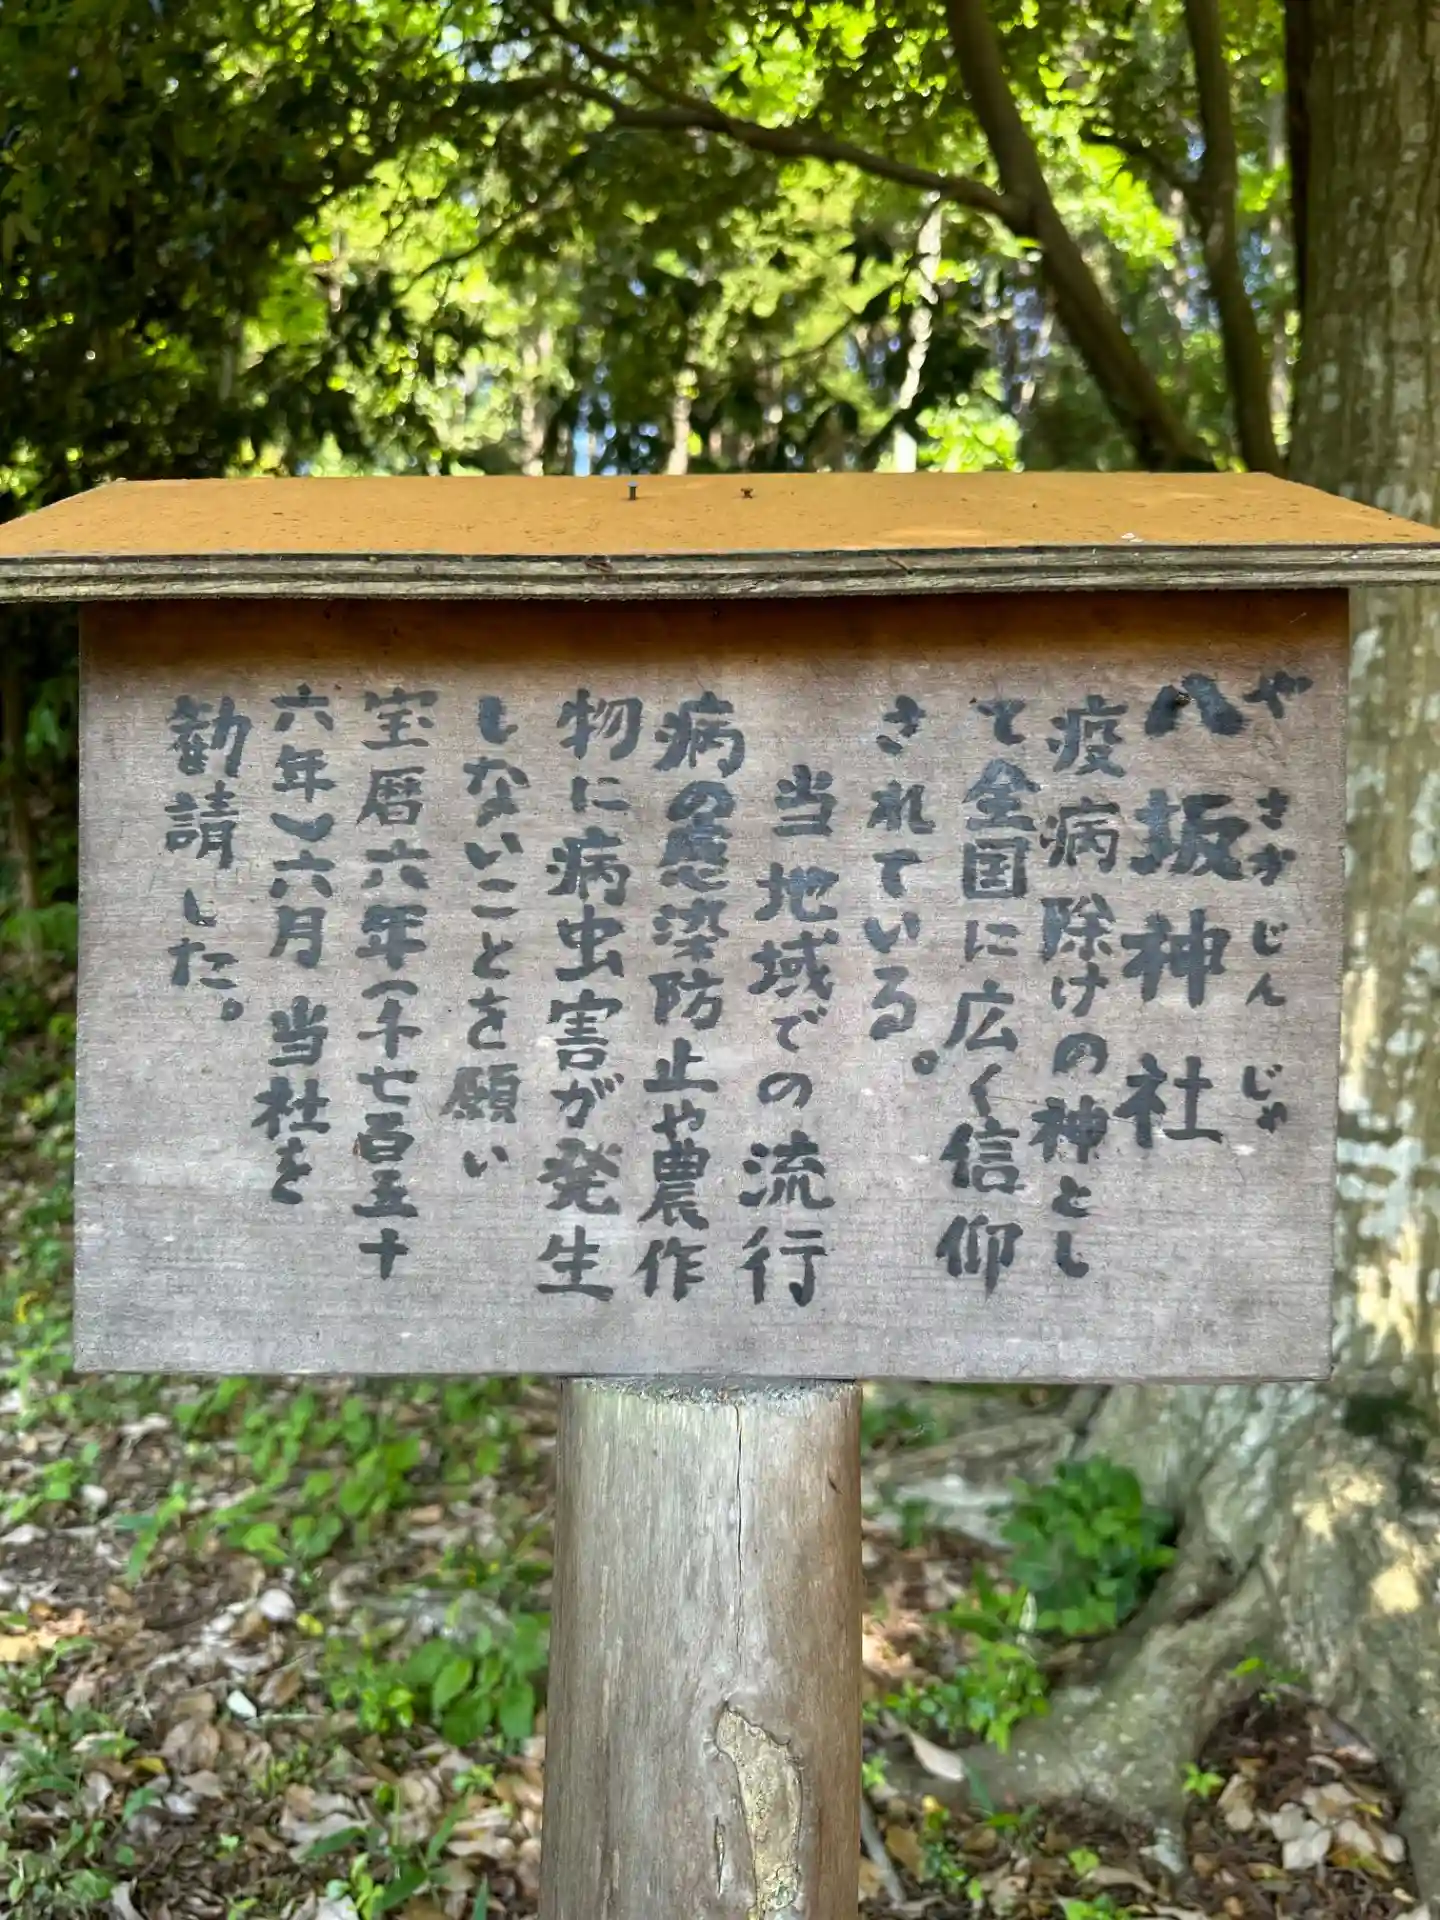 やさかじんじゃ
八坂神社
疫病除けの神とし
て全国に広く信仰
されている。
当地域での流行
病の悪染防止や農作
物に病虫害が発生
しないことを願い
宝暦六年(千七百五十
六年)六月当社を
勧請した。